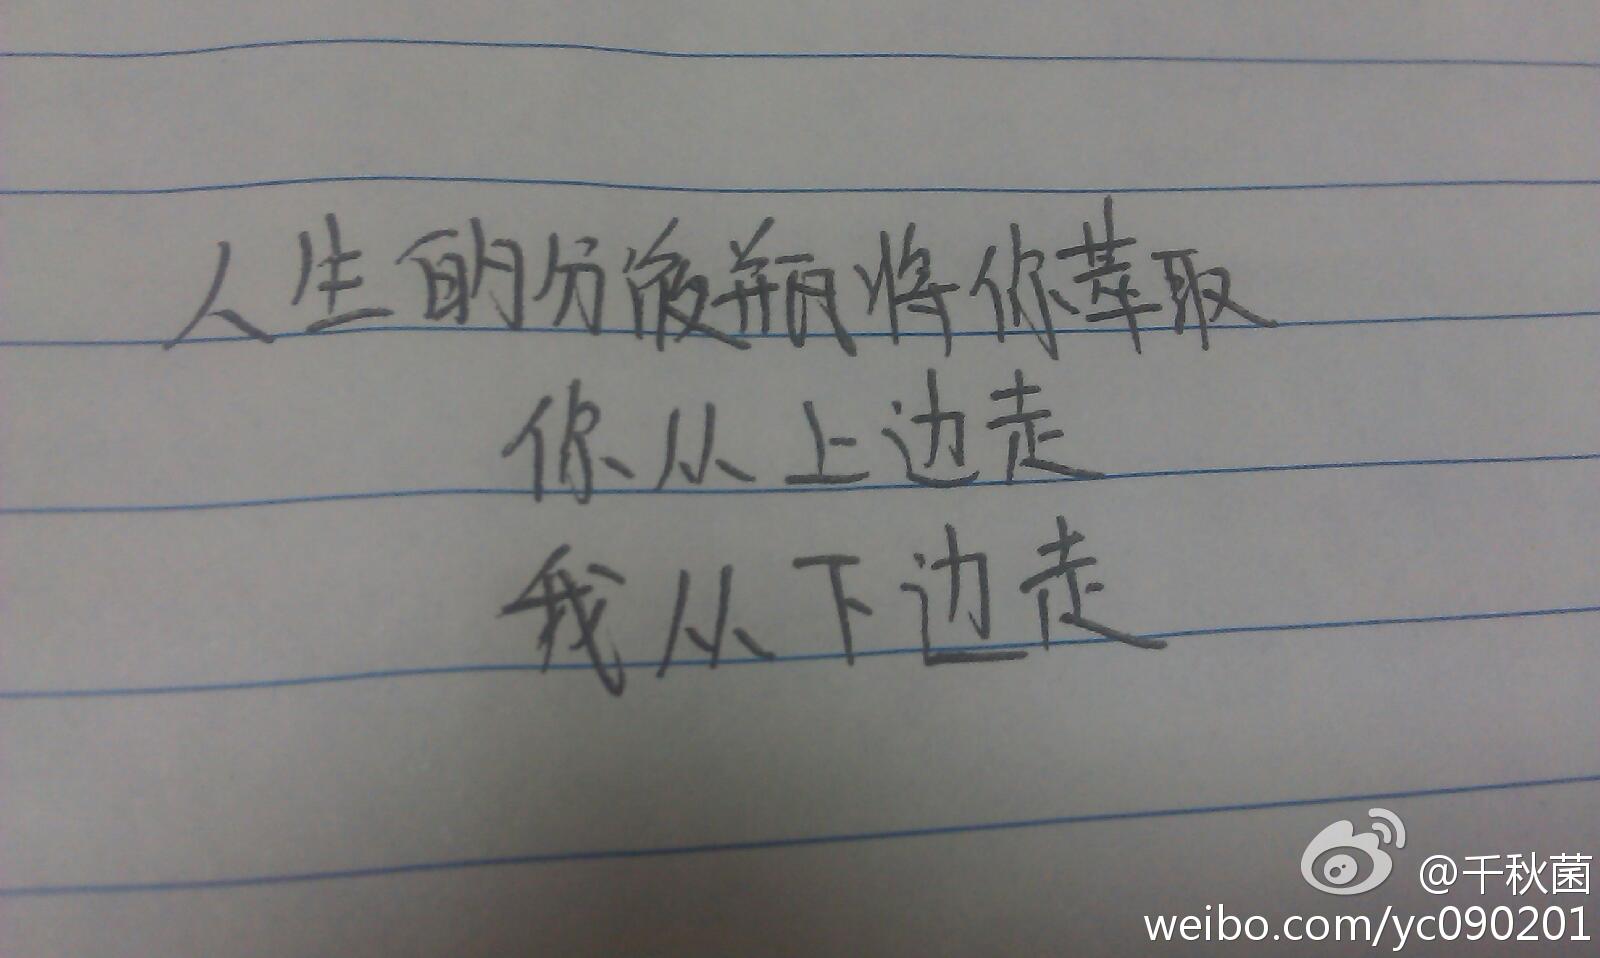 人生的分液瓶将你萃取
你从上边走
我从下边走
@千秋菌
weibo.com/yc090201